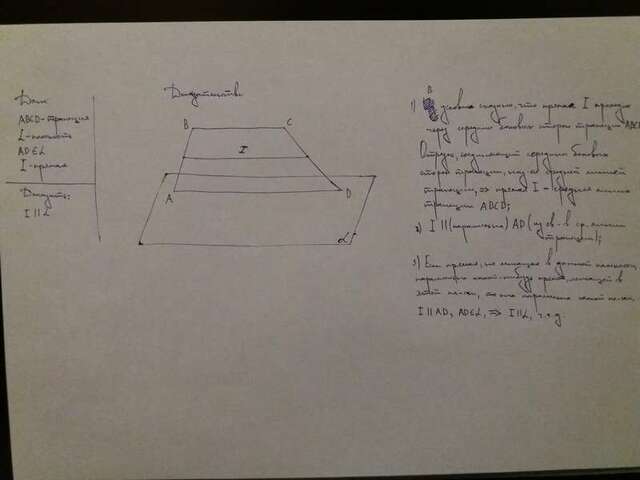 Дано:
ABCD-трапеция
L-плоскость
AD∈L
I-прямая
Доказать:
I || L
Доказательство
B C
I
A D
L
1) В условии сказано, что прямая I проходит
через середины боковых сторон трапеции ABCD
Отрезок, соединяющий середины боковых
сторон трапеции, наз-ся средней линией
трапеции, ⇒ прямая I - средняя линия
трапеции ABCD;
2) I || (параллельно) AD (из св-в ср. линии
трапеции);
3) Если прямая, не лежащая в данной плоскости,
параллельна какой-нибудь прямой, лежащей в
этой пл-ти, то она параллельна самой пл-ти.
I || AD, AD∈L, ⇒ I || L, ч.т.д.